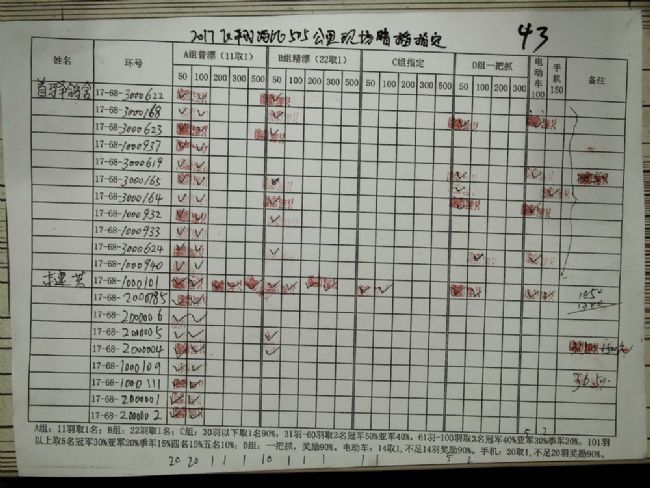 2017 飞翔 505公里现场暗插指定
43
姓名 环号 A组普漂 (11取1) B组精漂 (22取1) C组指定 D组一把抓 电动车100 手机150 备注
50 100 200 300 500 50 100 200 300 500 50 100 200 300 500 50 100 200 300
鸽舍 17-68-3000622
17-68-3000168
17-68-3000623
17-68-1000937
17-68-3000619
17-68-3000165
17-68-3000164
17-68-1000932
17-68-1000933
17-68-3000624
17-68-1000940
17-68-1000101
17-68-2000785 1850
17-68-2000006
17-68-2000005
17-68-2000004
17-68-1000109
17-68-1000111 3650
17-68-2000001
17-68-2000002
A组:11羽取1名;B组:22羽取1名;C组:30羽以下取1名90%,31羽-60羽取2名冠军50%亚军40%,61羽-100羽取3名冠军40%亚军30%季军20%,101羽
以上取5名冠军30%亚军20%季军15%四名15%五名10%;D组:一把抓,奖励90%。电动车:14取1,不足14羽奖励90%。手机:20取1,不足20羽奖励90%。
20 20 1 1 1 10 1 1 1 1 1 5 2